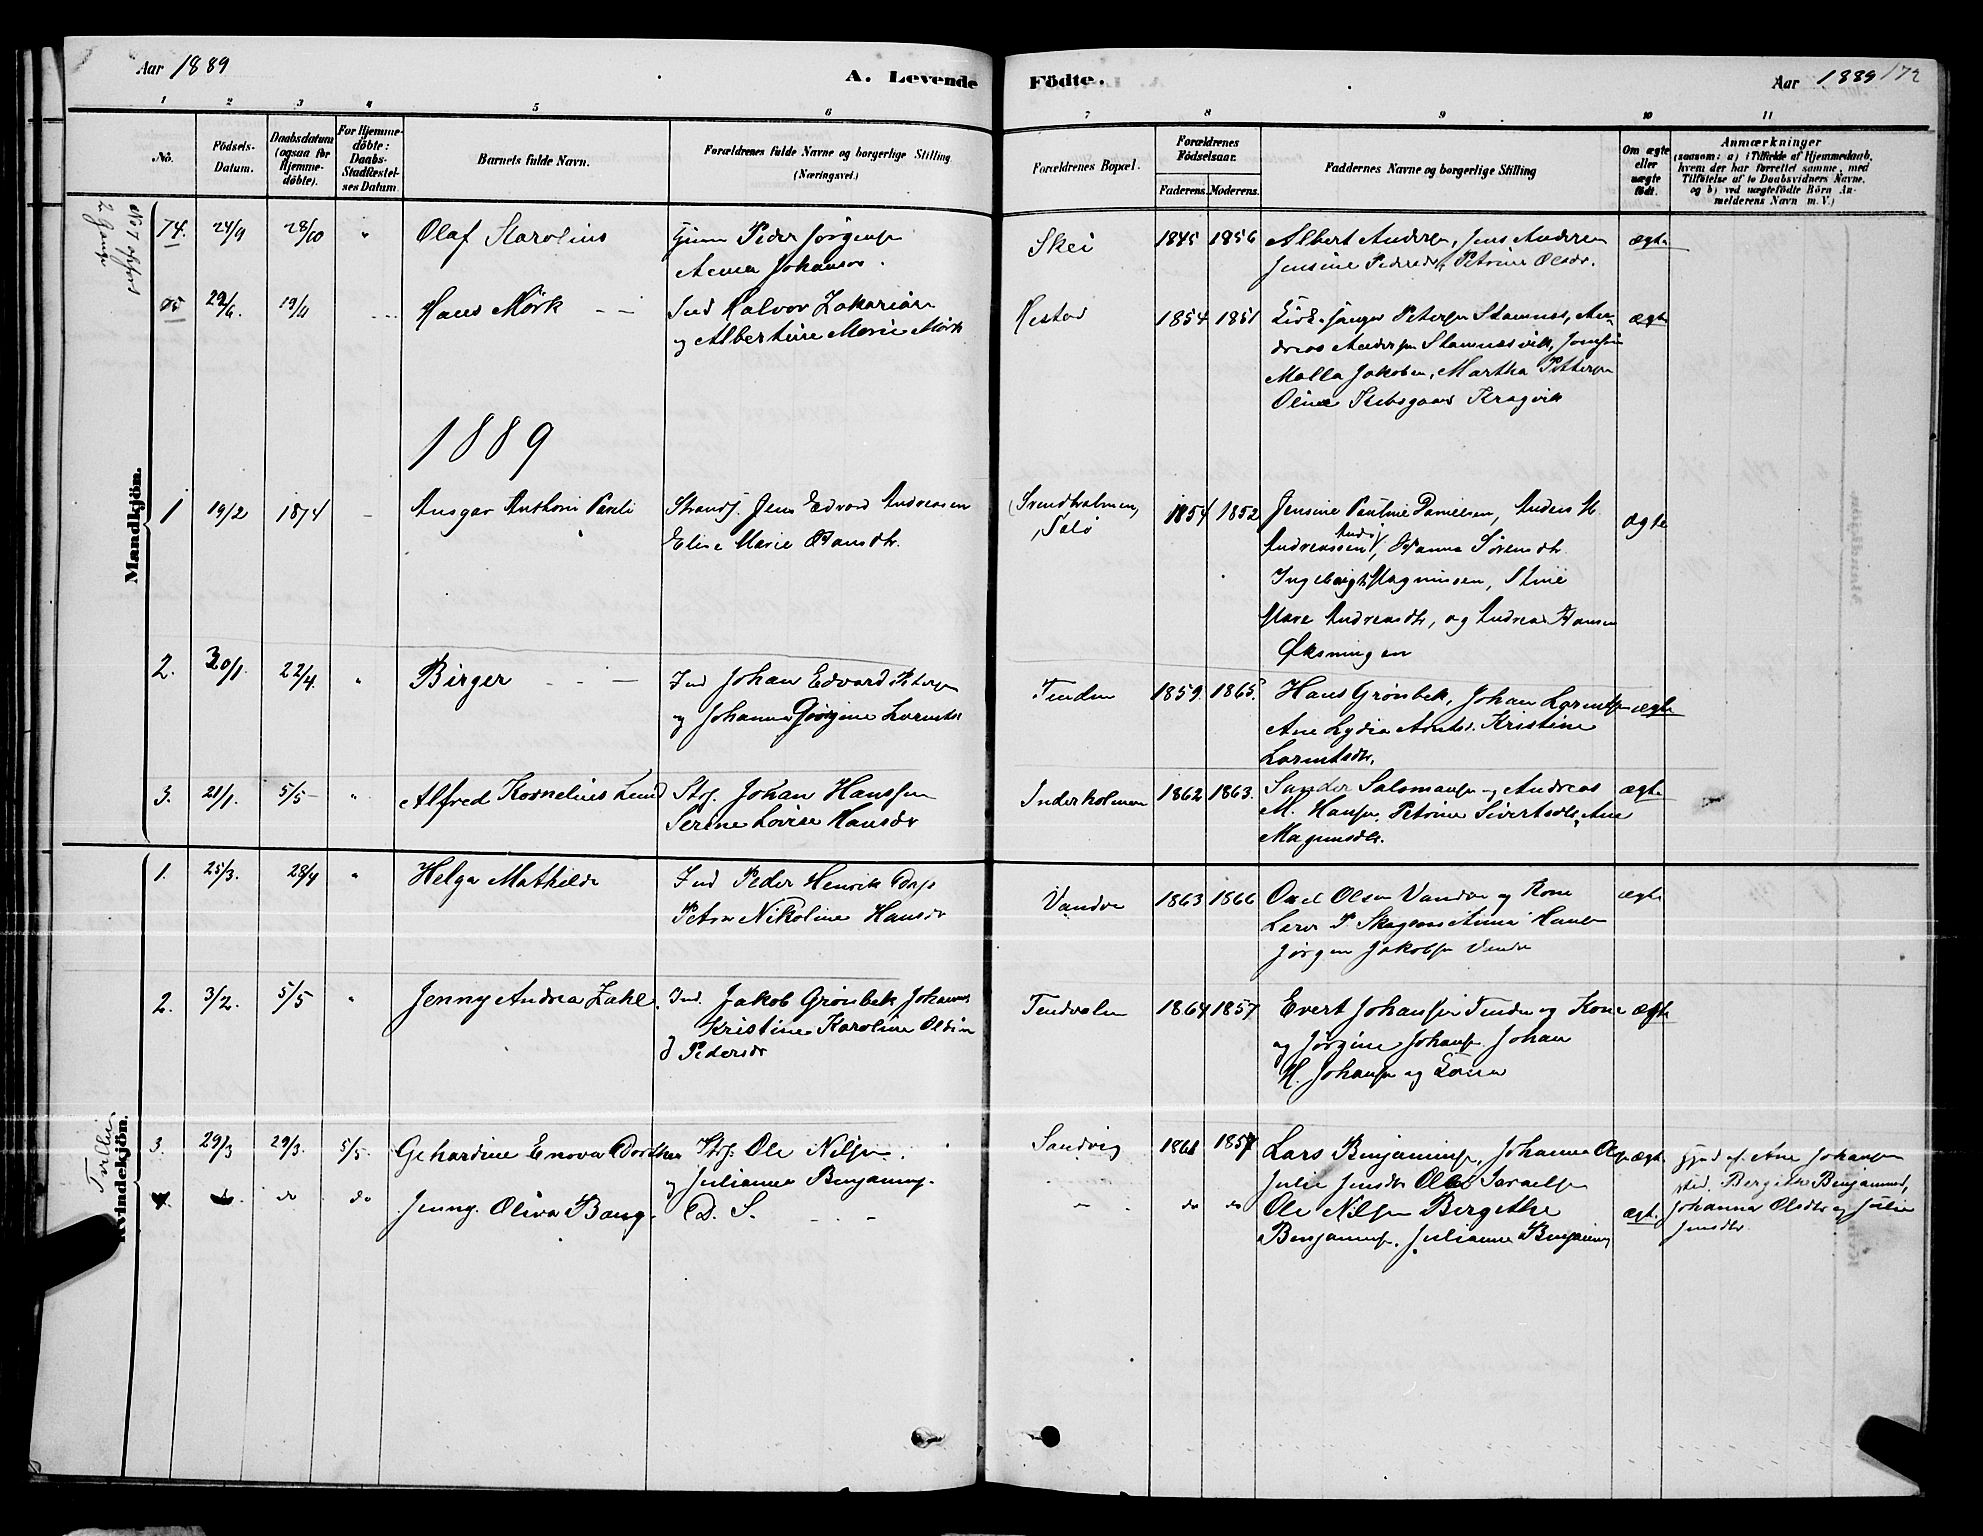 Aar 1889
A. Levende
Födte.
Aar 1889 172
1 2 3 4 5 6 7 8 9 10 11
No.
Födsels-Datum.
Daabsdatum (ogsaa for Hjemme-döbte).
For Hjemme-döbte: Daabs-Stadfæstel-ses Datum
Barnets fulde Navn.
Forældrenes fulde Navne og borgerlige Stilling
(Næringsvei.)
Forældrenes Bopæl.
Forældrenes Födselsaar.
Faderens. Moderens.
Faddernes Navne og borgerlige Stilling
Om ægte eller uægte födt.
Anmærkninger
(saasom: a) i Tilfælde af Hjemmedaab,
hvem der har forrettet samme, med
Tilföielse af to Daabsvidners Navne,
og b) ved uægtefödte Börn An-
melderens Navn m. V.)
Mandkjön.
74. 24/9 28/10 " Olaf Karolius
Peder Jørgensen
Anna Johansdr.
Skei 1845 1856
Albert Andersen, Jens Andersen
Jensine Pedersdr, Petrine Olsdr.
ægte
75 29/6. 19/11 Hans Mörk
Ind Halvor Zakariasen
og Albertine Marie Mörk
Hestad 1854 1851
Petersen Stamnes, An-
dreas Andersen Stamnesvik,
Malla Jakobsen, Martha Pettersen
Oline
ægte
1889
1 19/2 18/4 - Ansgar Anthoni
Strands. Jens Edvard Andreassen
Elise Marie Hansdtr.
Svendholmen, Salø
1854 1852
Jensine Pauline Danielsen, Anders M.
Andreassen, Hanna Sørensdtr.
Ingeborg Magnussen, Stine
Mare Andreasdtr, og Andreas Hansen
Øksningen
ægte
2. 30/1. 22/4. " Birger
Ind Johan Edvard Petersen
og Johanna Jörgine Lorentsdr
Tenden 1859. 1865.
Hans Grönbek, Johan Lorentsen
Ane Lydia Arntsdr. Kristine
Lorentsdtr.
ægte
3. 21/1. 5/5 " Alfred Kornelius Lund
Str. Johan Hanssen
Serine Lovise Hansdr
Inderholmen 1862 1863.
Sander Salomonsen og Andreas
M. Hansen. Petrine Sivertsdtr, Ane
Magnusdtr.
ægte
Kvindekjön.
1. 25/3. 28/4 " Helga Mathilde
Ind Peder Henrik
Nikoline Hansdr
Vandve 1863 1866
Olsen Vandve og Kone
Anna Hansen
Jørgen Jakobsen Vandve
ægte
2. 3/2. 5/5 " Jenny Andrea Zahl.
Ind. Jakob Grönbek Johannes
Kristine Karoline Oldine
Pedersdr
Tendvalen 1864 1857
Evert Johansen Tenden og Kone
og Jørgine Johansen. Johan
H. Johansen og Kone
ægte
Tvillin
3. 29/3 29/3. 5/5. Gehardine Enova Dorthea
Str. Ole Nilsen.
og Julianna Benjamins.
Sandvig 1861 1857
Lars Benjaminsen, Johanna
Julie Jensdr Ole Israelsen
ægte
Ane Johansen
Bergitte Benjaminsd,
Johanna Olsdtr og Julie
Jensdtr.
4. do do do Jenny Oliva Bang.
D. S.
" do do
Ole Nilsen Bergithe
Benjamins. Julianna Benjamins
ægt.